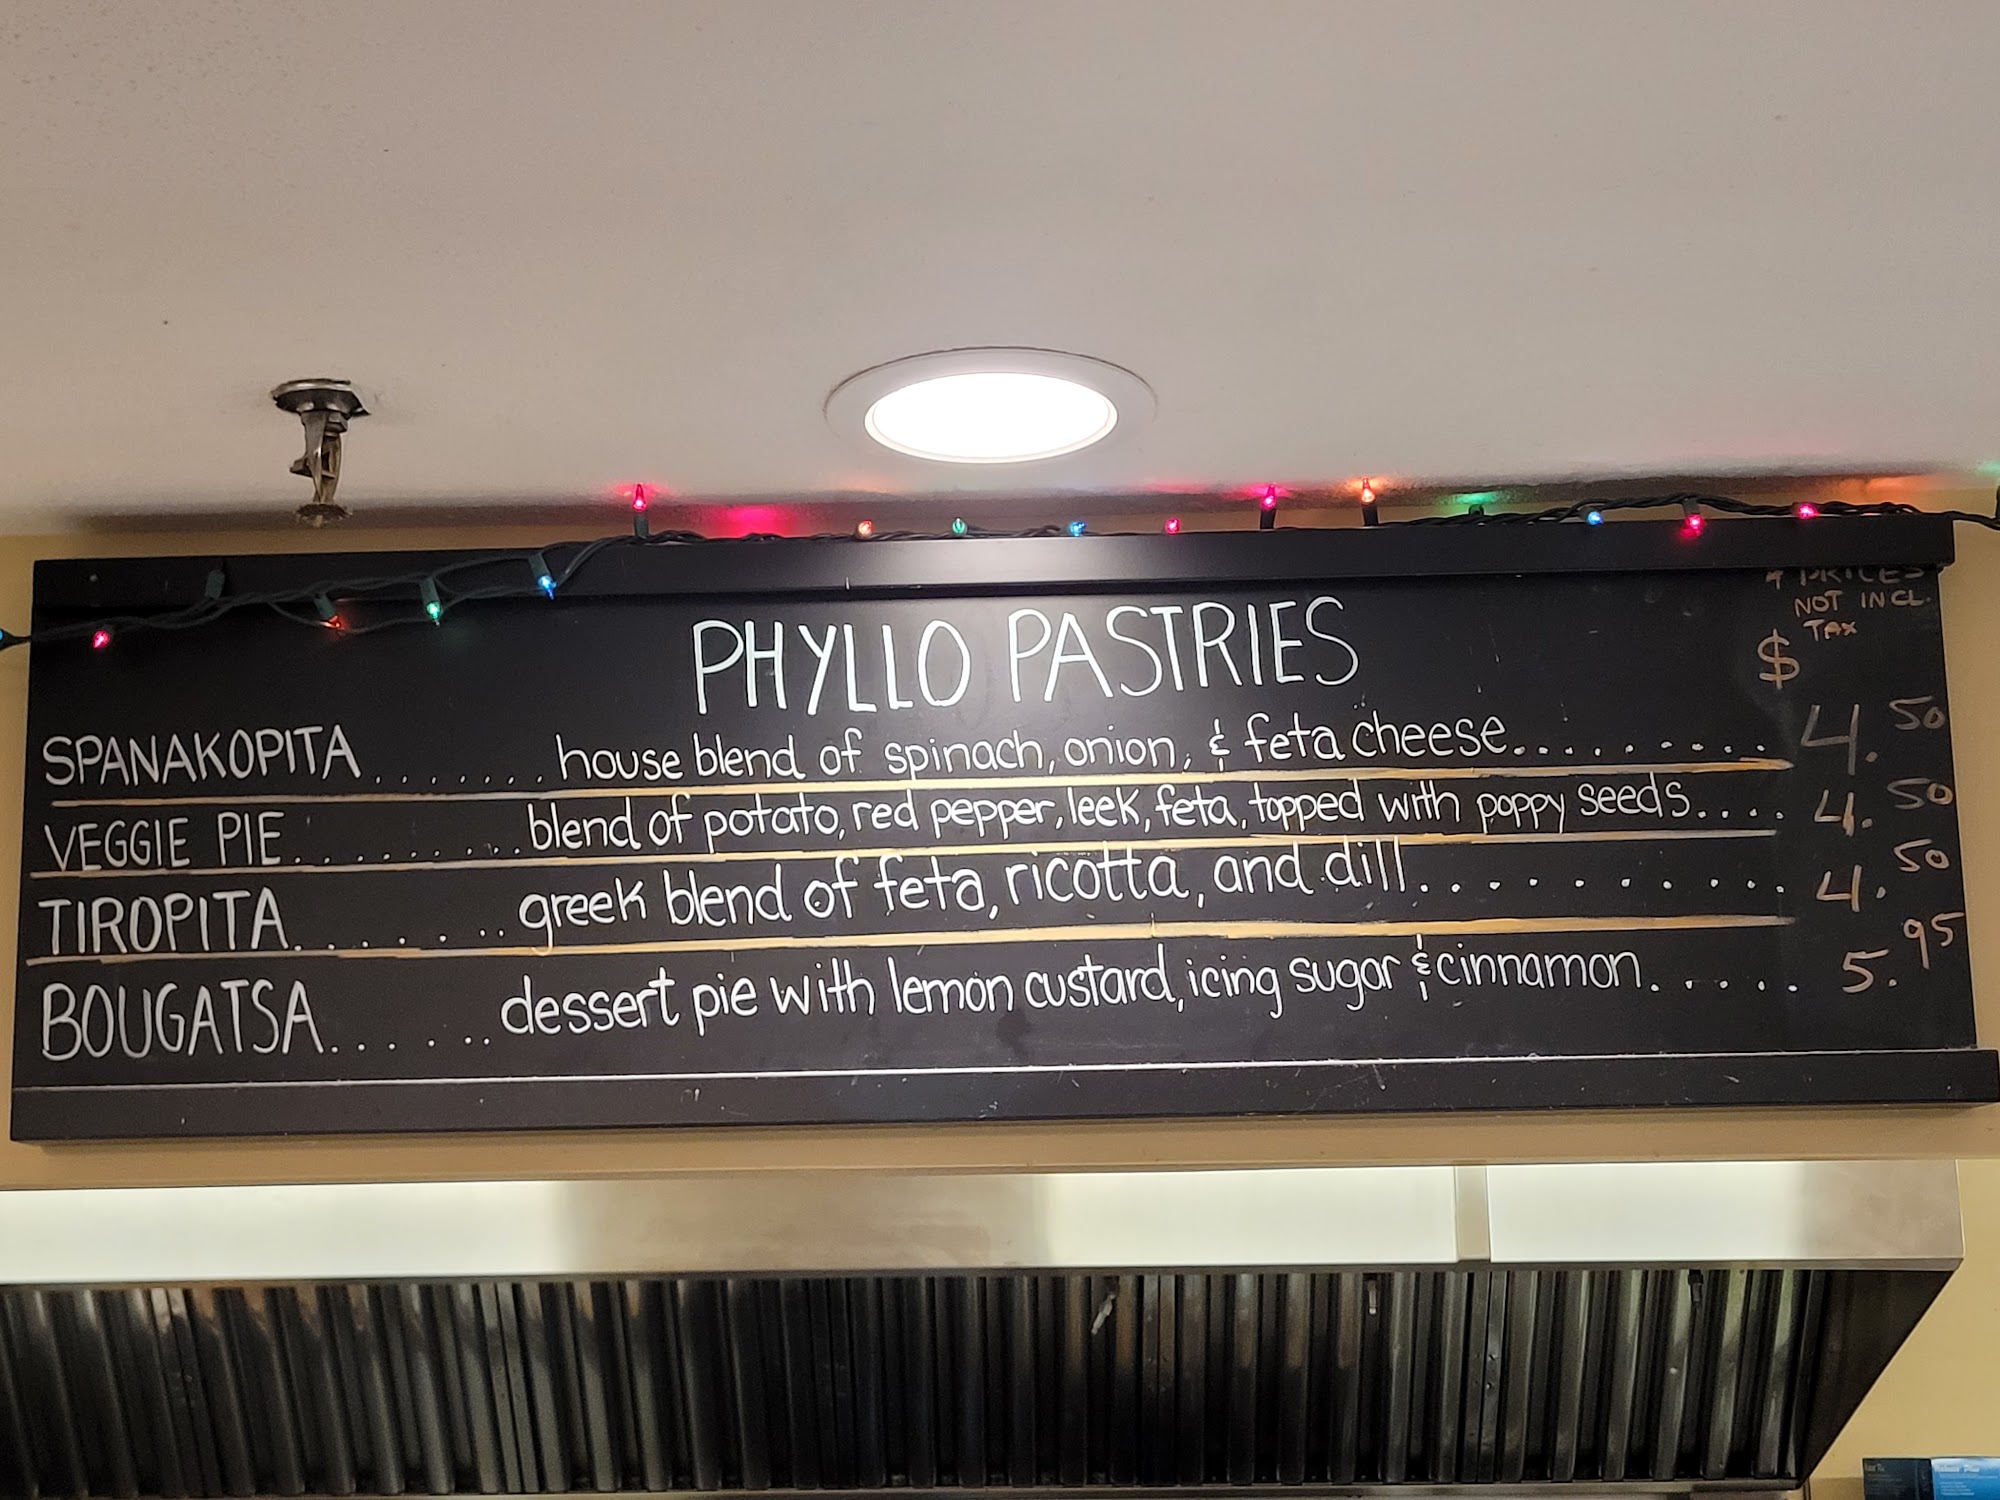 * PRICES
NOT INCL.
TAX
$
PHYLLO PASTRIES
SPANAKOPITA........house blend of spinach, onion, & feta cheese.......... 4.50
VEGGIE PIE..........blend of potato, red pepper, leek, feta, topped with poppy seeds.... 4.50
TIROPITA........greek blend of feta, ricotta, and dill........... 4.50
BOUGATSA......dessert pie with lemon custard, icing sugar & cinnamon...... 5.95